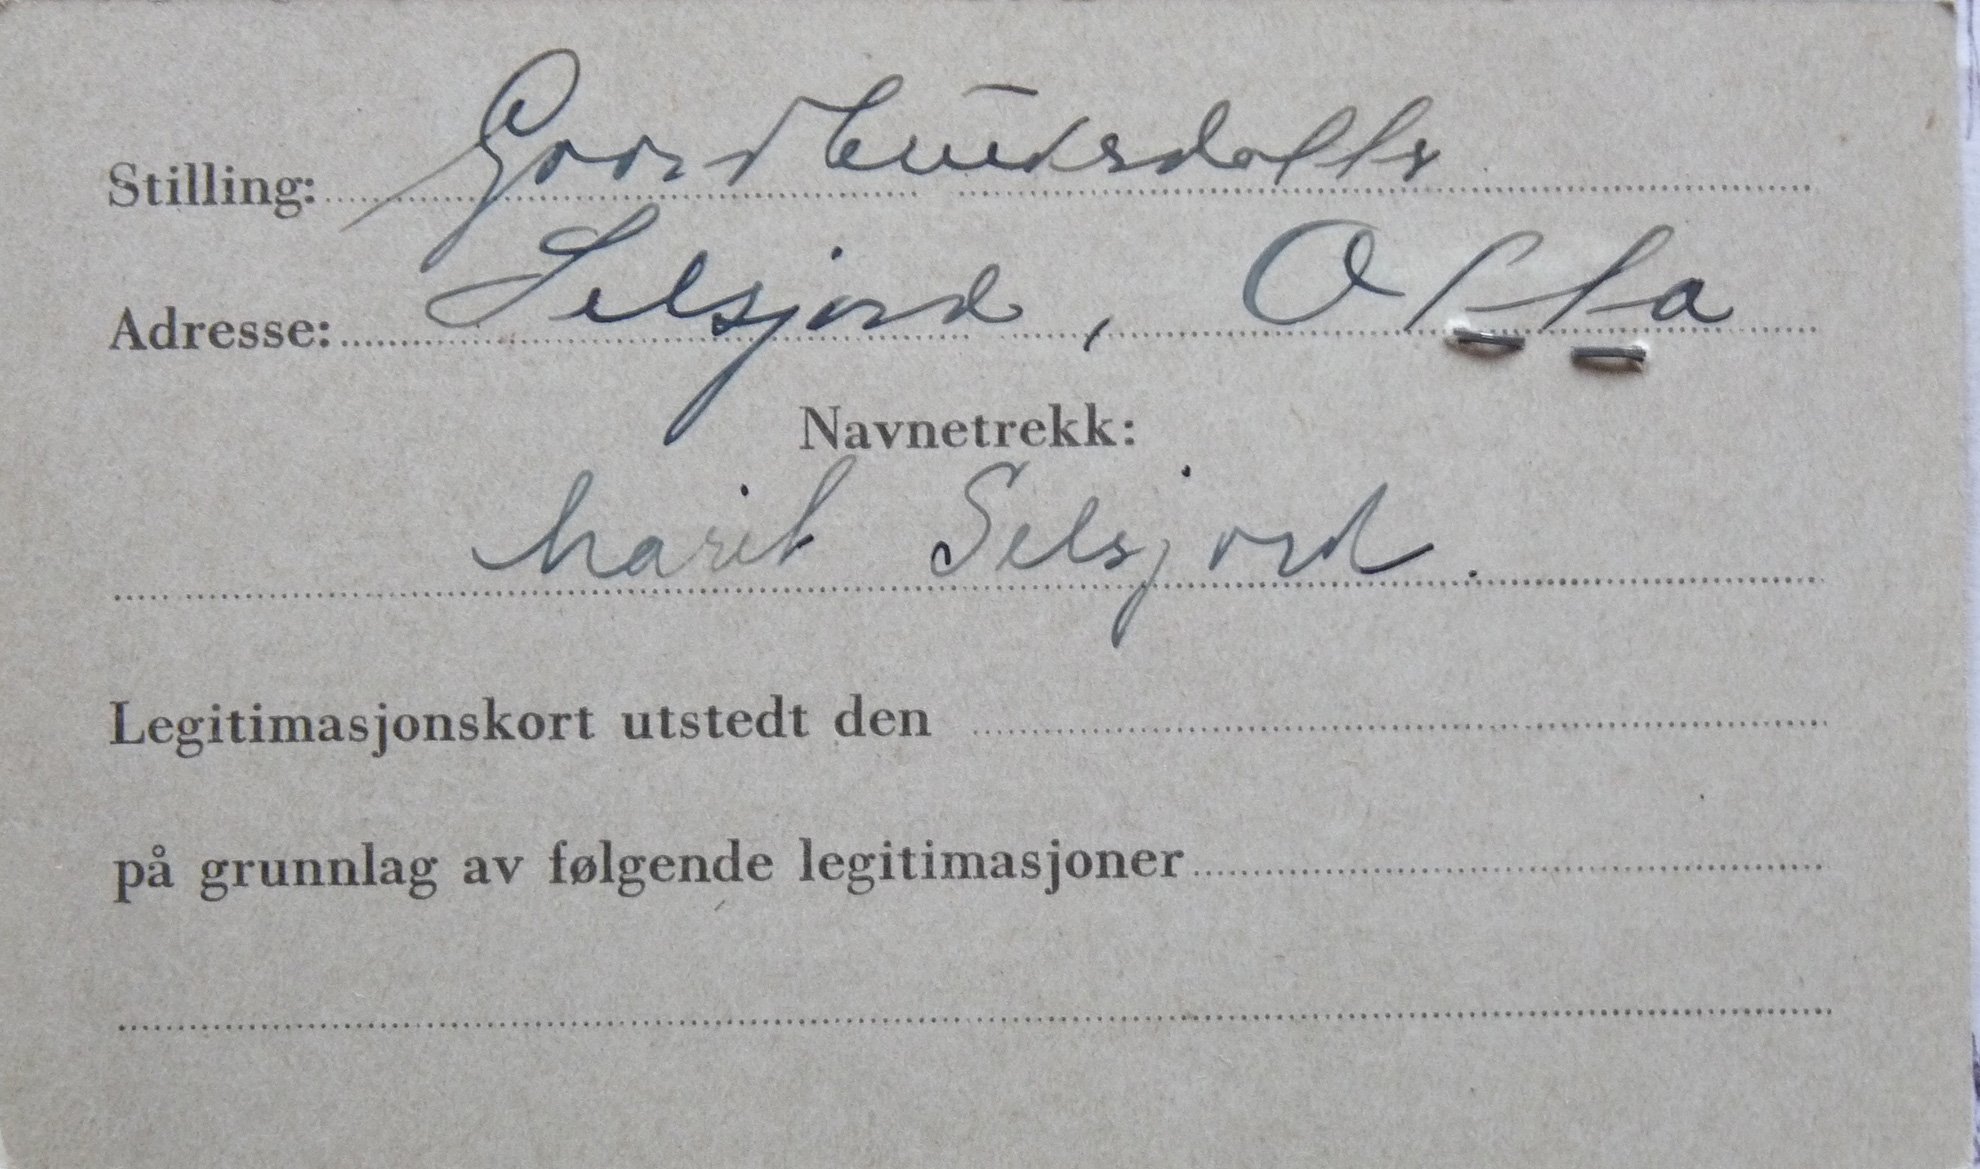 Stilling:
Adresse: Selsjord, Otta
Navnetrekk:
Marit Selsjord.
Legitimasjonskort utstedt den
på grunnlag av følgende legitimasjoner